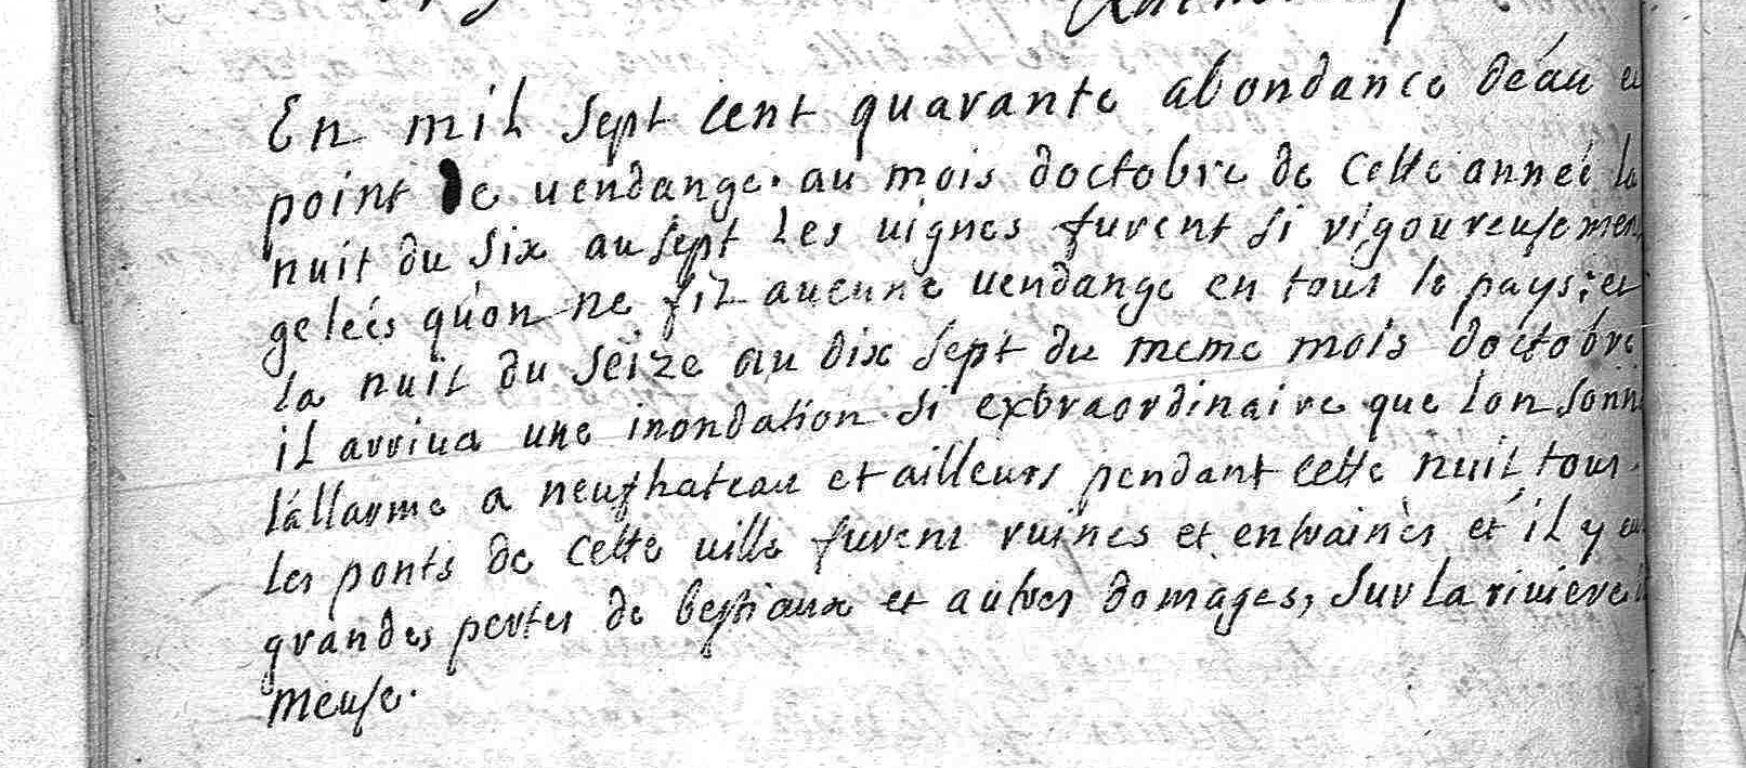 En mil sept cent quarante abondance déau et
point de uendange. au mois doctobre de cette anneé la
nuit du six au sept les uignes furent si rigoureusemen
geleés qu'on ne fit aucune uendange en tout le pays: et
la nuit du seize au dix sept du meme mois doctobre
il arriua une inondation si extraordinaire que lon sonna
l'allarme a neufhateau et ailleurs pendant cette nuit, tous
les ponts de cette uille furent ruinés et entrainès et il y eu
grandes pertes de bestiaux et autres domages, sur la riuiere
meuse.